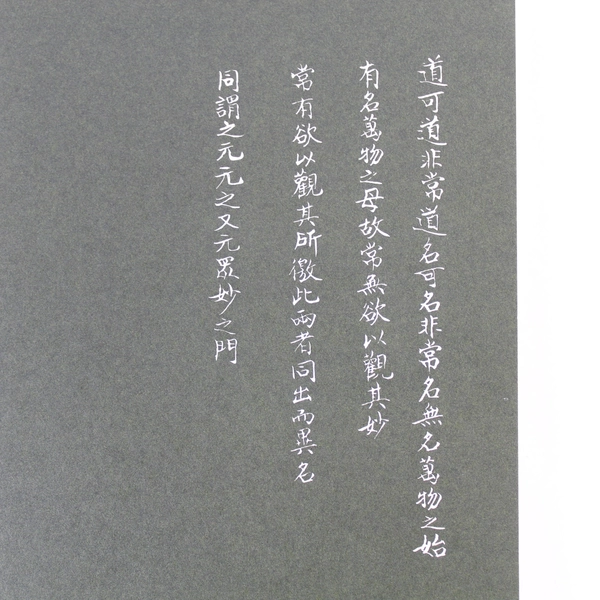 道可道非常道名可名非常名無名萬物之始
有名萬物之母故常無欲以觀其妙
常有欲以觀其所徼此兩者同出而異名
同謂之元元之又元眾妙之門